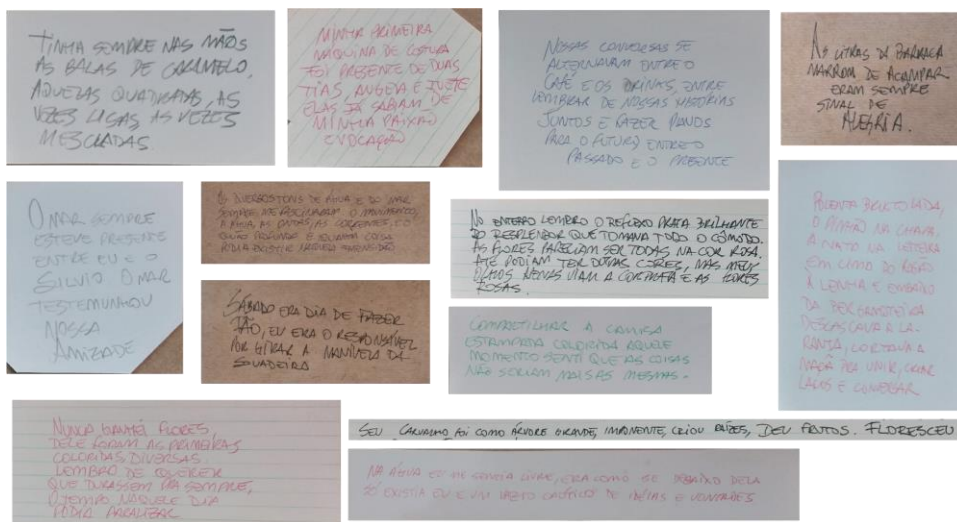 TINHA SEMPRE NAS MÃOS
AS BALAS DE CARAMELO,
AQUELAS QUADRADAS, AS
VEZES LISAS, AS VEZES
MESCLADAS.
MINHA PRIMEIRA
MÁQUINA DE COSTURA
FOI PRESENTE DE DUAS
TIAS, ANGELA E IVETE
ELAS JÁ SABIAM DE
MINHA PAIXÃO
E VOCAÇÃO
NOSSAS CONVERSAS SE
ALTERNAVAM ENTRE O
CAFÉ E OS DRINKS, ENTRE
LEMBRAR DE NOSSAS HISTÓRIAS
JUNTOS E FAZER PLANOS
PARA O FUTURO ENTRE O
PASSADO E O PRESENTE
AS LISTRAS DA BARRACA
MARROM DE ACAMPAR
ERAM SEMPRE
SINAL DE
ALEGRIA.
O MAR SEMPRE
ESTEVE PRESENTE
ENTRE EU E O
SILVIO. O MAR
TESTEMUNHOU
NOSSA
AMIZADE
OS DIVERSOS TONS DE ÁGUA E DO MAR
SEMPRE ME FASCINARAM O MOVIMENTO,
A AREIA, AS ONDAS, AS CORRENTES, E O
QUÃO PROFUNDO E QUANTA COISA
PODIA EXISTIR NAQUELA IMENSIDÃO
SÁBADO ERA DIA DE FAZER
PÃO, EU ERA O RESPONSÁVEL
POR GIRAR A MANIVELA DA
SOVADEIRA
NO ENTERRO LEMBRO O REFLEXO PRATA BRILHANTE
DO RESPLENDOR QUE TOMAVA TODO O CÔMODO.
AS FLORES PARECIAM SER TODAS NA COR ROSA.
ATÉ PODIAM TER OUTRAS CORES, MAS MEUS
OLHOS APENAS VIAM A COR PRATA E AS FLORES
ROSAS.
COMPARTILHAR A CAMISA
ESTAMPADA COLORIDA AQUELE
MOMENTO SENTI QUE AS COISAS
NÃO SERIAM MAIS AS MESMAS.
POLENTA BRUSTOLADA,
O PINHÃO NA CHAPA,
A NATA NA LEITEIRA
EM CIMA DO FOGÃO
À LENHA E ENTÃO
DA BERGAMOTEIRA
DESCASCAVA A LA-
RANJA, CORTAVA A
MAÇÃ PRA UNIR, CRIAR
LAÇOS E CONVERSAR
NUNCA GANHEI FLORES,
DELE FORAM AS PRIMEIRAS
COLORIDAS DIVERSAS.
LEMBRO DE QUERER
QUE DURASSEM PRA SEMPRE,
O TEMPO NAQUELE DIA
PODIA PARALIZAR
SEU CARVALHO FOI COMO ÁRVORE GRANDE, IMPONENTE, CRIOU RAÍZES, DEU FRUTOS. FLORESCEU
NA ÁGUA EU ME SENTIA LIVRE, ERA COMO SE DEBAIXO DELA
SÓ EXISTIA EU E UM VAZIO CAÓTICO DE IDEIAS E VONTADES